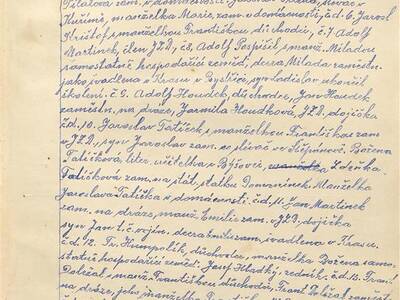 zam. v domácnosti,
Kuříně, manželka Marie, zam. v domácnosti, čd. 6. Jarosl.
Krištof s manželkou Františkou důchodci, č. 7 Adolf
Martinek, člen JZD, č. 8. Adolf Pospíšil, manž. Miladou
samostatně hospodařící zeměd., dcera Milada zaměstn.
jako švadlena v Krasu v Bystřici, syn Ladislav ukončil
školení. č. 9. Adolf Houdek, důchodce, Jan Houdek
zaměstn. na dráze, Jarmila Houdková, JZD. dojička
čd. 10. Jaroslav Tatíček s manželkou Františkou zam
v JZD, syn Jaroslav zam. ve slévár. ve Štěpánově. Božena
Tatíčková, liter. učitelka v Býšovci, Zdeňka
Tatíčková zam. na stát. statku Manželka
Jaroslava Tatíčka v domácnosti. č. d. 11. Jan Martinek
zam. na dráze, manž. Emilie zam. v JZD, dojička
syn Jan t. č. vojín. dcera Emilie zam. švadlena v Krasu.
č. d. 12. Fr. Humpolík, důchodce, vnučka Božena samo-
statně hospodařící zeměd. Josef Hladký, ředník, č. d. 13. Frant.
Doležal s manž. Františkou důchodci, Frant. Doležal zamést.
na dráze, jeho manželka